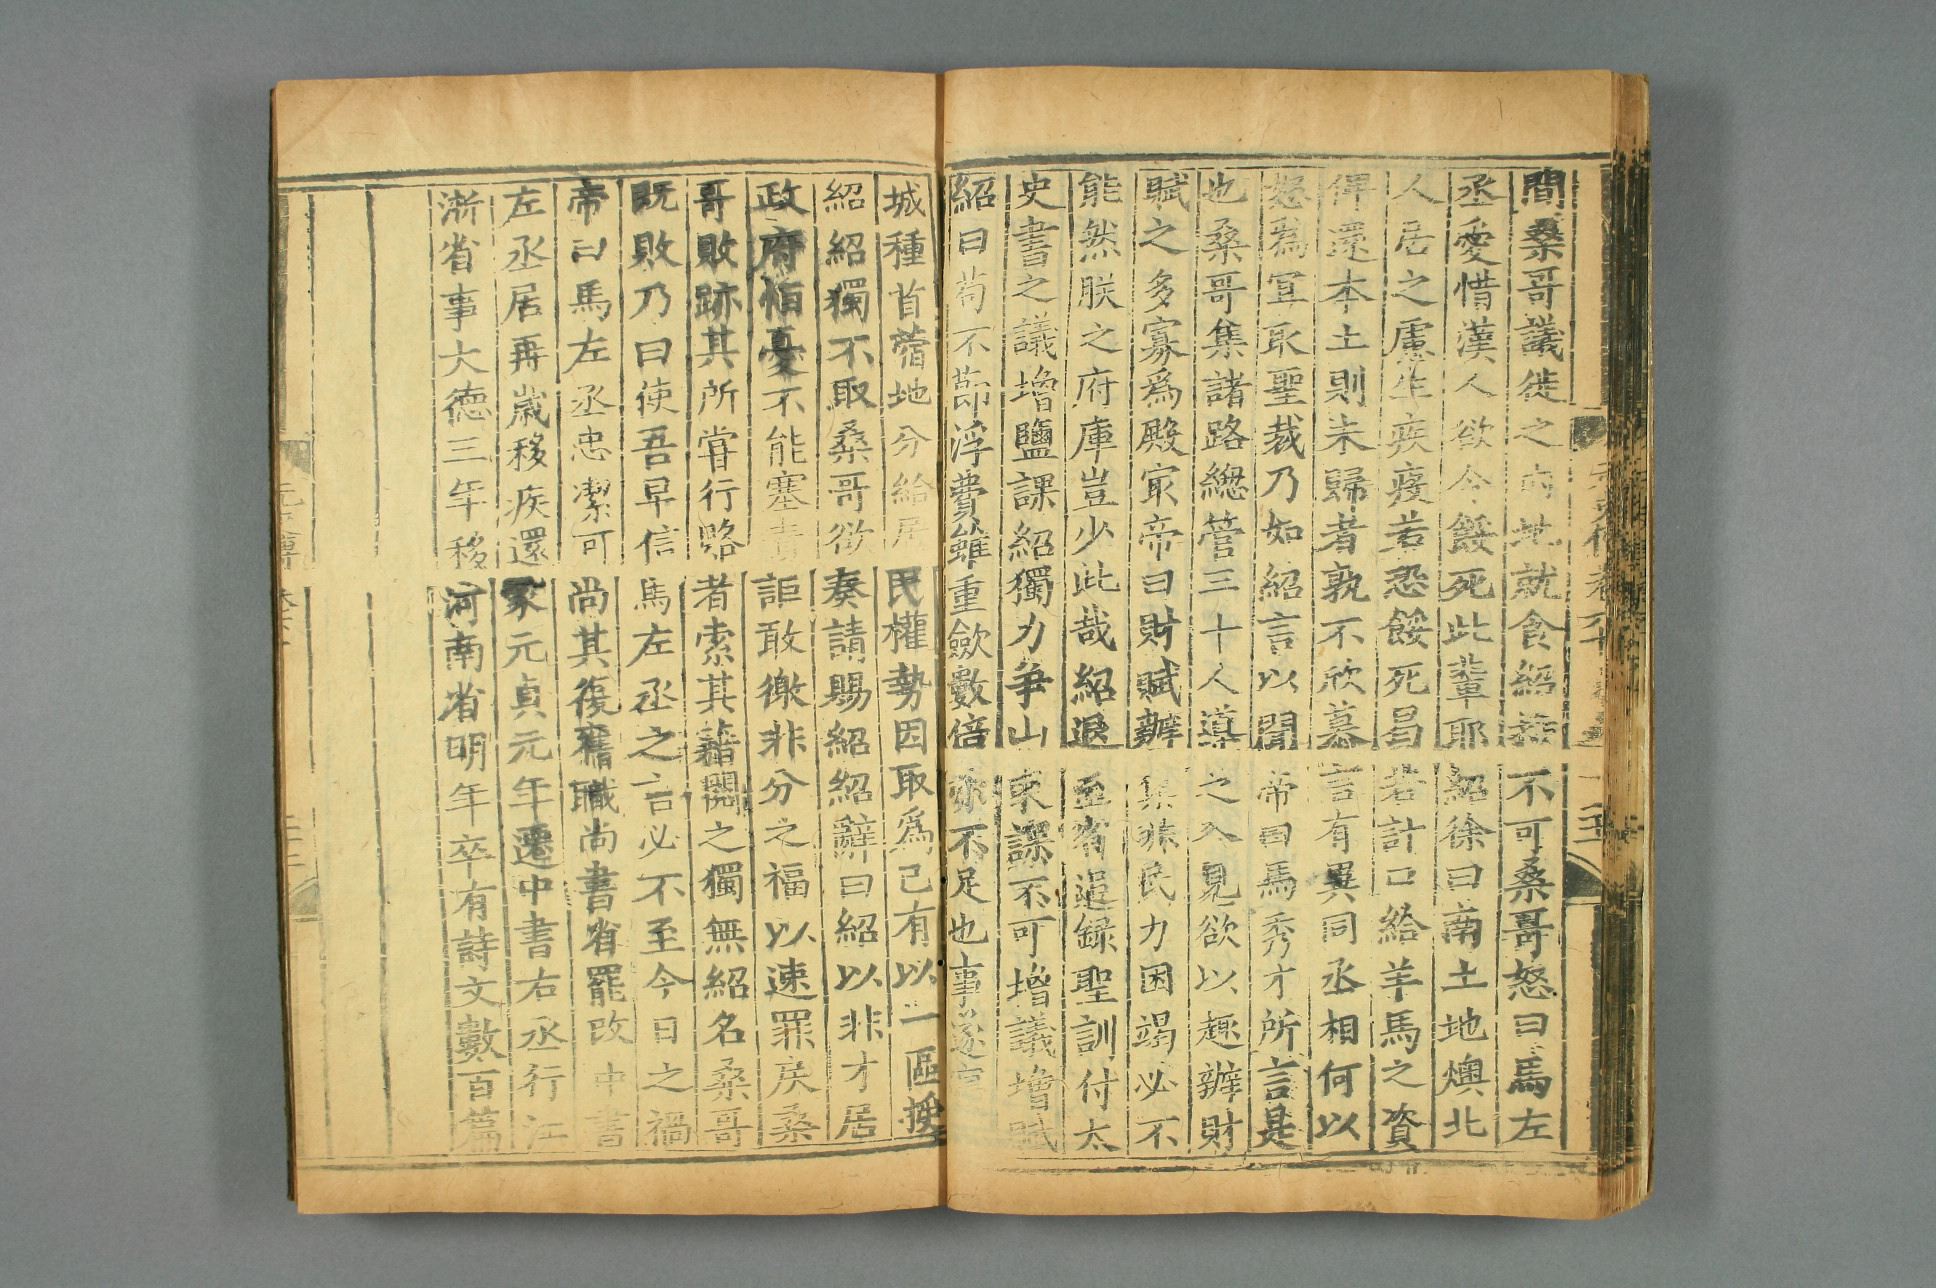 間桑哥議徙之內地就食紹持不可桑哥怒曰馬左
丞愛惜漢人欲令餒死此輩耶紹徐曰南土地燠北
人居之慮生疾疫若恐餒死曷若計口給羊馬之資
俾還本土則未歸者孰不欣慕言有異同丞相何以
怒爲宜取聖裁乃如紹言以聞帝曰馬秀才所言是
也桑哥集諸路總管三十人導之入見欲以趣辦財
賦之多寡爲殿最帝曰財賦辦集非民力困竭必不
能然朕之府庫豈少此哉紹退至省追錄聖訓付太
史書之議增鹽課紹獨力爭山東課不可增議增賦
紹曰苟不節浮費雖重歛數倍亦不足也事遂
城種苜蓿地分給居民權勢因取爲己有以一區授
紹紹獨不取桑哥欲奏請賜紹紹辭曰紹以非才居
政府恒憂不能塞責詎敢徼非分之福以速罪戾桑
哥敗跡其所甞行賂者索其籍閱之獨無紹名桑哥
既敗乃曰使吾早信馬左丞之言必不至今日之禍
帝曰馬左丞忠潔可尚其復舊職尚書省罷改中書
左丞居再歲移疾還家元貞元年遷中書右丞行江
浙省事大德三年移河南省明年卒有詩文數百篇